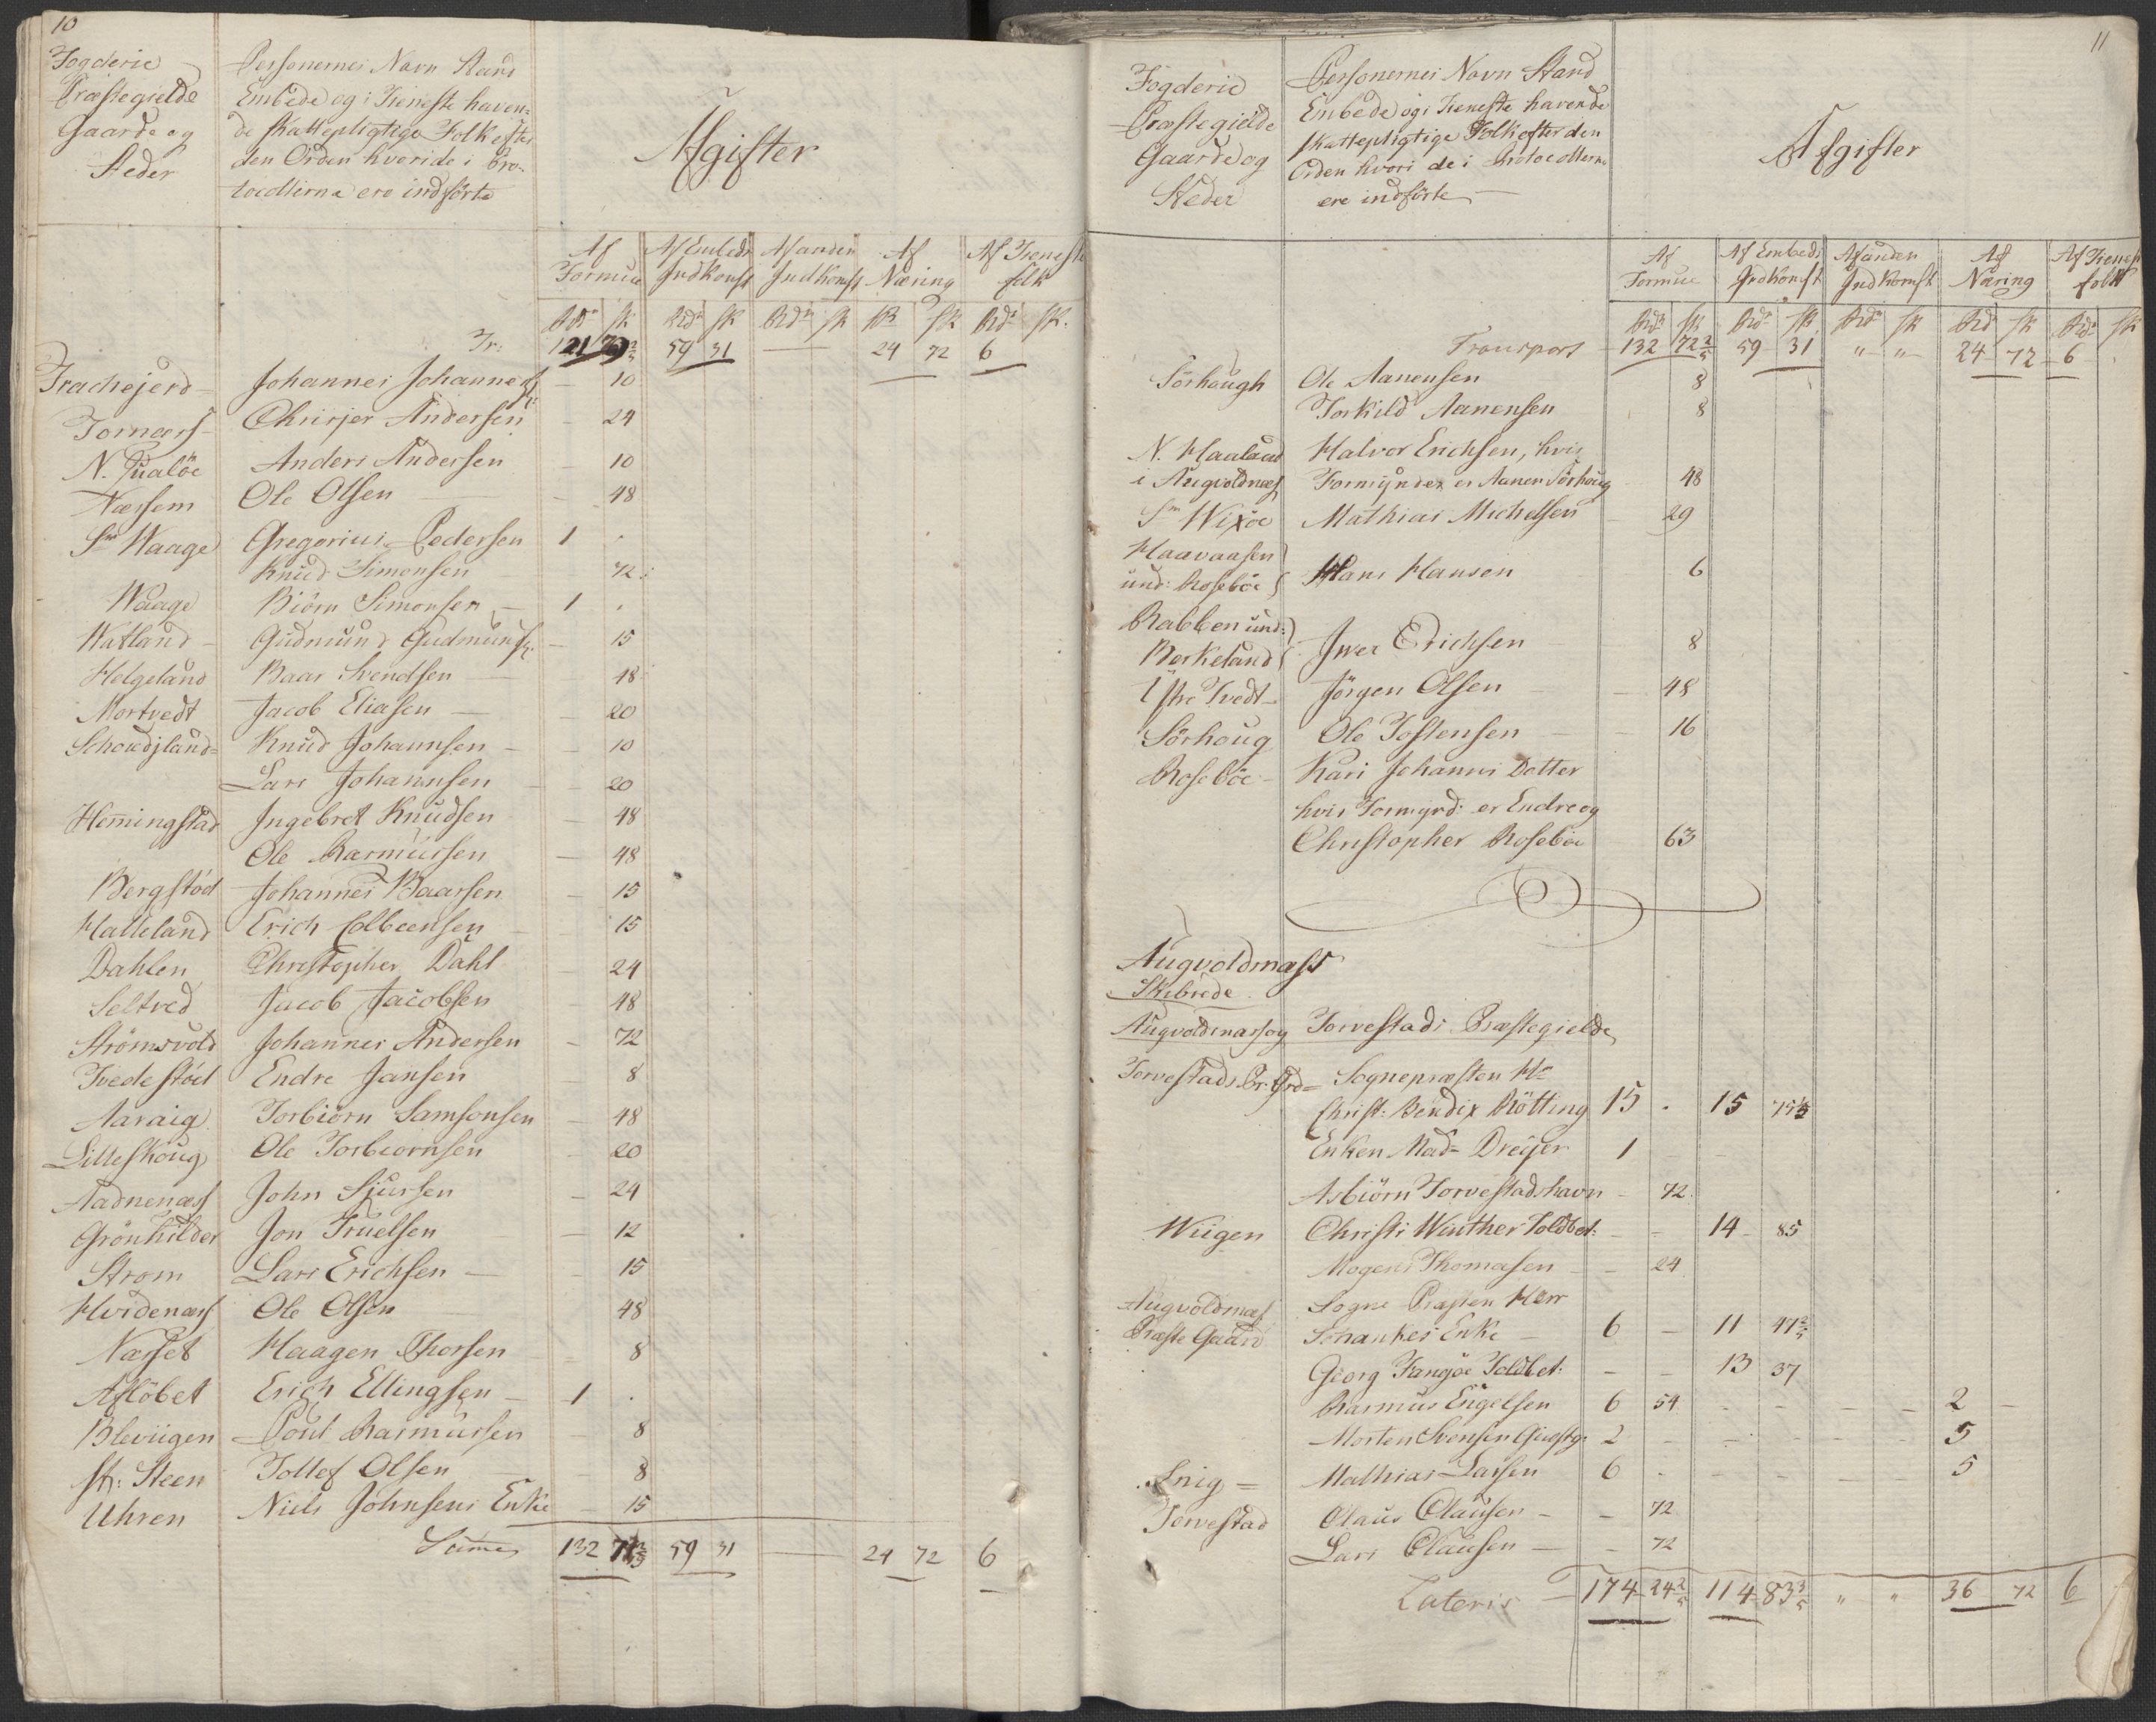 10
Fogderie Personernes Navn Stand
Præstegielde Embede og i Tieneste haven-
Gaarde og de skattepligtige Folk efter
Steder den Orden hvori de i Pro-
tocollerne ere indførte
Afgifter
Af Formue Af Embeds Indkomst Af anden Indkomst Af Næring Af Tieneste folk
Rdr sk Rdr sk Rdr sk Rd sk Rdr sk
Tr: 121 59 31 — 24 72 6
Johannes Johannes: — 10
Andersen — 24
Anders Andersen — 10
Næssem Ole Olsen — 48
Sr Waage Gregorius Pedersen 1 .
Knud Simonsen 72
Waage Biörn Simonsen — 1 .
Watland — Gudmund Gudmunds: — 15
Helgeland Baar Svendsen — 48
Mortvedt Jacob Eliasen — 20
Knud Johannsen — 10
Lars Johannsen — 20
Hemingstad Ingebret Knudsen — 48
Ole Rasmussen — 48
Bergstöd Johannes Baarsen — 15
Hatteland Erich Colbeensen 15
Dahlen Christopher Dahl 24
Seltved Jacob Jacobsen 48
Strömsvold Johannes Andersen — 72
Tvedestöd Endre Jansen 8
Aaraig Torbiörn Samsonsen — 48
Lilleskoug Ole Torbiornsen 20
Aadnenæss John Sjursen — 24
Grönhilder Jon Truelsen — 12
Strom Lars Erichsen — 15
Hvidenæss Ole Olsen 48
Næsset Haagen Thorsen — 8
Aflöbet Erich Ellingsen — 1 .
Bleviigen Poul Rasmussen — 8
St: Steen Tollef Olsen — 8
Uhren Niels Johnsens Enke — 15
Summa 132 59 31 — 24 72 6
11
Fogderie Personernes Navn Stand
Præstegielde Embede og i Tieneste havende
Gaarde og skattepligtige Folk efter den
Steder Orden hvori de i Protocollerne
ere indførte —
Afgifter
Af Formue Af Embeds Indkomst Af anden Indkomst Af Næring Af Tieneste folk
Rdr sk Rdr sk Rdr sk Rd sk Rdr sk
Transport 132 72 2/5 59 31 " " 24 72 6 .
Sörhaugh Ole Aanensen 8
Torkild Aanensen 8
N. Haaland Halvor Erichsen, hvis
i Augvoldnæs Formynder er Aanen Sörhoug 48
Sr Wixöe Mathias Michelsen 29
Haavaasen
und: Roseböe Hans Hansen 6
Rabben und:
Berkeland Iver Erichsen — 8
Tvedt — Jörgen Olsen — 48
Sörhoug Ole Tostensen — 16
Roseböe — Kari Johannes Datter
hvis Formynd: er Endre og
Christopher Roseböe 63
Augvoldnæss
Skibrede
Augvoldnæss og Torvestads Præstegielde
Torvestads Pr: Grd = Sognepræsten Hr
Christ: Bendix Rötting 15 . 15 75
Enken Mad= Dreijer 1
Asbiörn Torvestadshavn — 72
Wiigen Christi Winther Toldbet: — — 14 85
Mogens Thomasen — 24
Augvoldnæs Sogne Præsten Herr
Præste Gaard Schankes Enke — 6 — 11
Georg Toldbet: — — 13 37
Rasmus Engelsen 6 54 — — — — 2 —
Morten Svensen Giæstg: 2 — — — — — 5
Snig = Mathias Larsen 6 . — — — 5
Torvestad Claus Clausen — — 72
Lars Clausen — — 72
Lateris — 174 24 2/5 114 83 3/5 " " 36 72 6